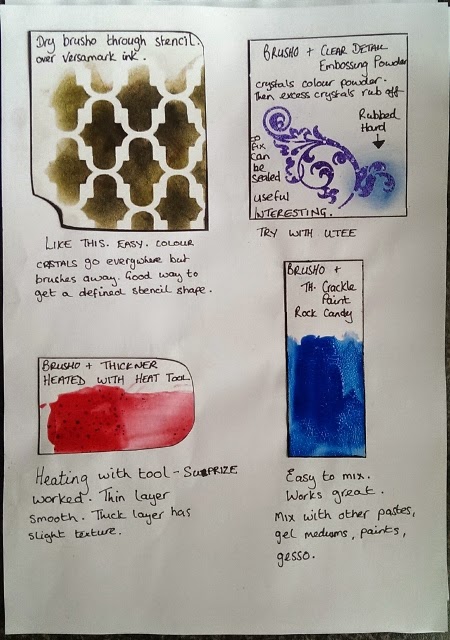 Dry brusho through stencil.
over versamark ink.
LIKE THIS. EASY. COLOUR
CRSTALS go everywhere but
brushes away. Good way to
get a defined stencil shape.
BRUSHO + CLEAR DETAIL
Embossing Powder
crystals colour powder.
Then excess crystals rub off
Rubbed
Hard
& Fix
can
be
sealed
useful
INTERESTING.
TRY WITH UTEE
BRUSHO + THICKNER
HEATED WITH HEAT TOOL
Heating with tool - SURPRIZE
worked. Thin layer
smooth. Thick layer has
slight texture.
BRUSHO +
TH. Crackle
Paint
Rock Candy
Easy to mix.
Works great.
Mix with other pastes,
gel mediums, paints,
gesso.